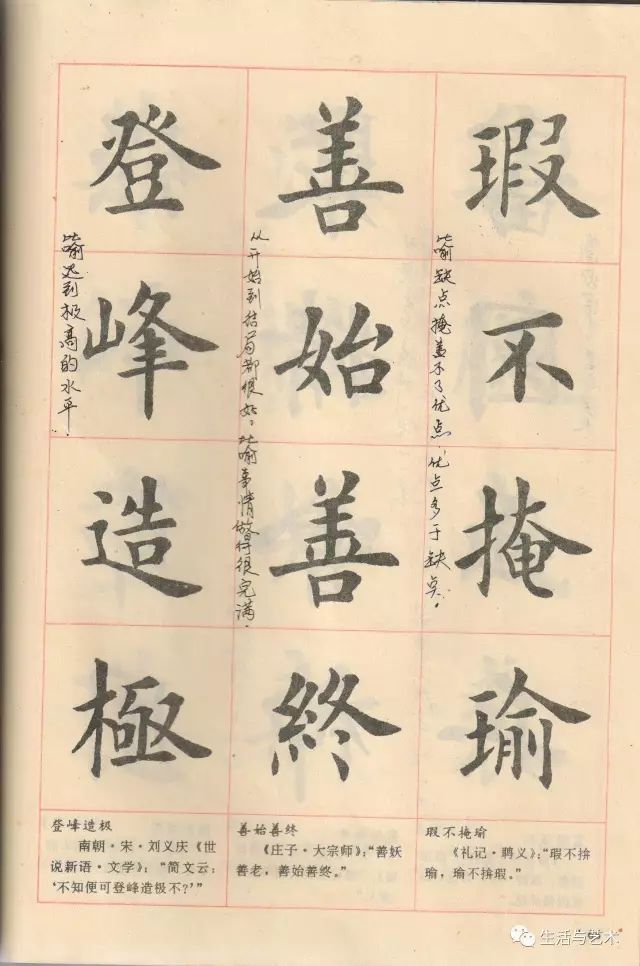 瑕不掩瑜
比喻缺点掩盖不了优点，优点多于缺点。
善始善終
从开始到结局都很好。比喻事情做得很完满。
登峰造極
比喻达到极高的水平。
瑕不掩瑜
《礼记·聘义》：“瑕不揜
瑜，瑜不揜瑕。”
善始善终
《庄子·大宗师》：“善妖
善老，善始善终。”
登峰造极
南朝·宋·刘义庆《世
说新语·文学》：“简文云：
‘不知便可登峰造极不？’”
生活与艺术